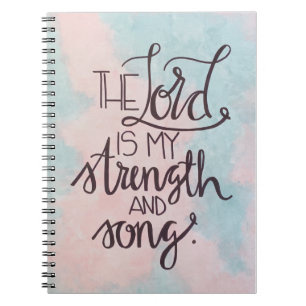 THE Lord
IS MY
strength
AND
song.